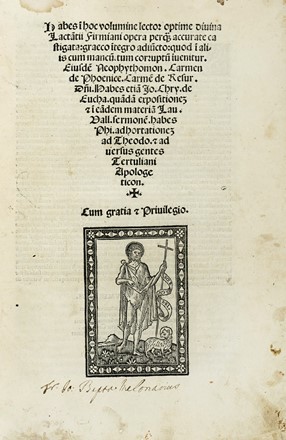 Habes i hoc volumine lector optime divina
Lactātii Firmiani opera perq̄ accurate ca
stigata: graeco itegro adiūcto: quod i ali
is cum mancū. tum corruptū iuenitur.
Eiusdē Neophythomon. Carmen
de Phoenice. Carmē de Resur.
Dñi. Habes etiā Jo. Chry. de
Eucha. quādā expositionez
& i eādem materiā Lau.
Vall. sermonē. habes
Phi. adhortationez
ad Theodo. & ad
versus gentes
Tertuliani
Apologe
ticon.
Cum gratia & Privilegio.
fr. Jo. Bapta